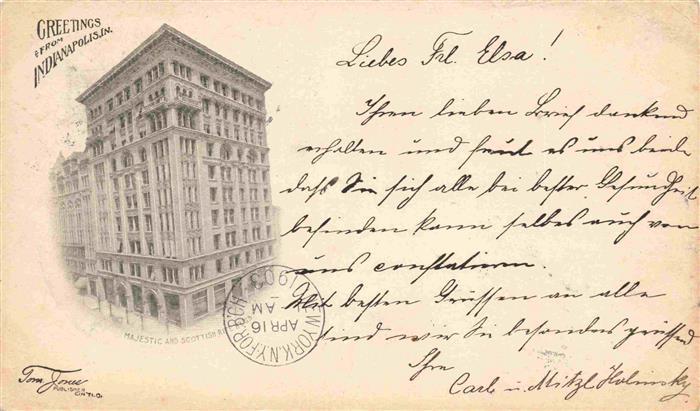 GREETINGS
FROM
INDIANAPOLIS, IN.
Liebes Frl. Elsa!
Ihren lieben Brief dankend
erhalten und freut es uns beide
dass Sie sich alle bei bester Gesundheit
befinden kann selbes auch von
uns constatieren.
Mit besten Grüssen an alle
sind wir Sie besonders grüssend
Ihre
Carl u. Mitzl
MAJESTIC AND SCOTTISH
NEW YORK, N.Y. FOR. BCH.
APR 16
AM
1903
Tom Jones
PUBLISHER
CIN'TI, O.